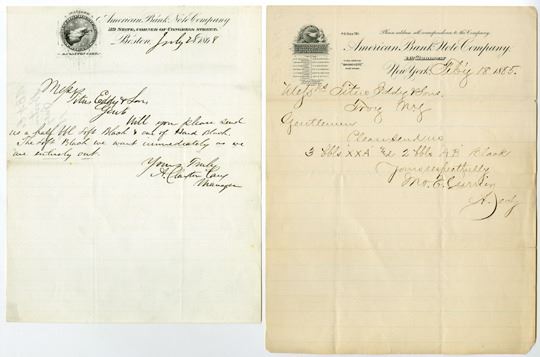 American Bank Note Company
State, corner of Congress Street,
Boston, July 28 1868
Messrs
Titus Eddy & Son,
Gents
Will you please send
us a half bbl Soft Black & out of Hard Black.
The Soft Black we want immediately as we
are entirely out.
Yours Truly
Manager
Please address all correspondence to the Company.
American Bank Note Company,
New York, 18, 1885.
Messrs Titus Eddy & Sons.
Troy
Gentlemen
Please send us
3 bbls XXA & 2 bbls AB Black
Yours respectfully